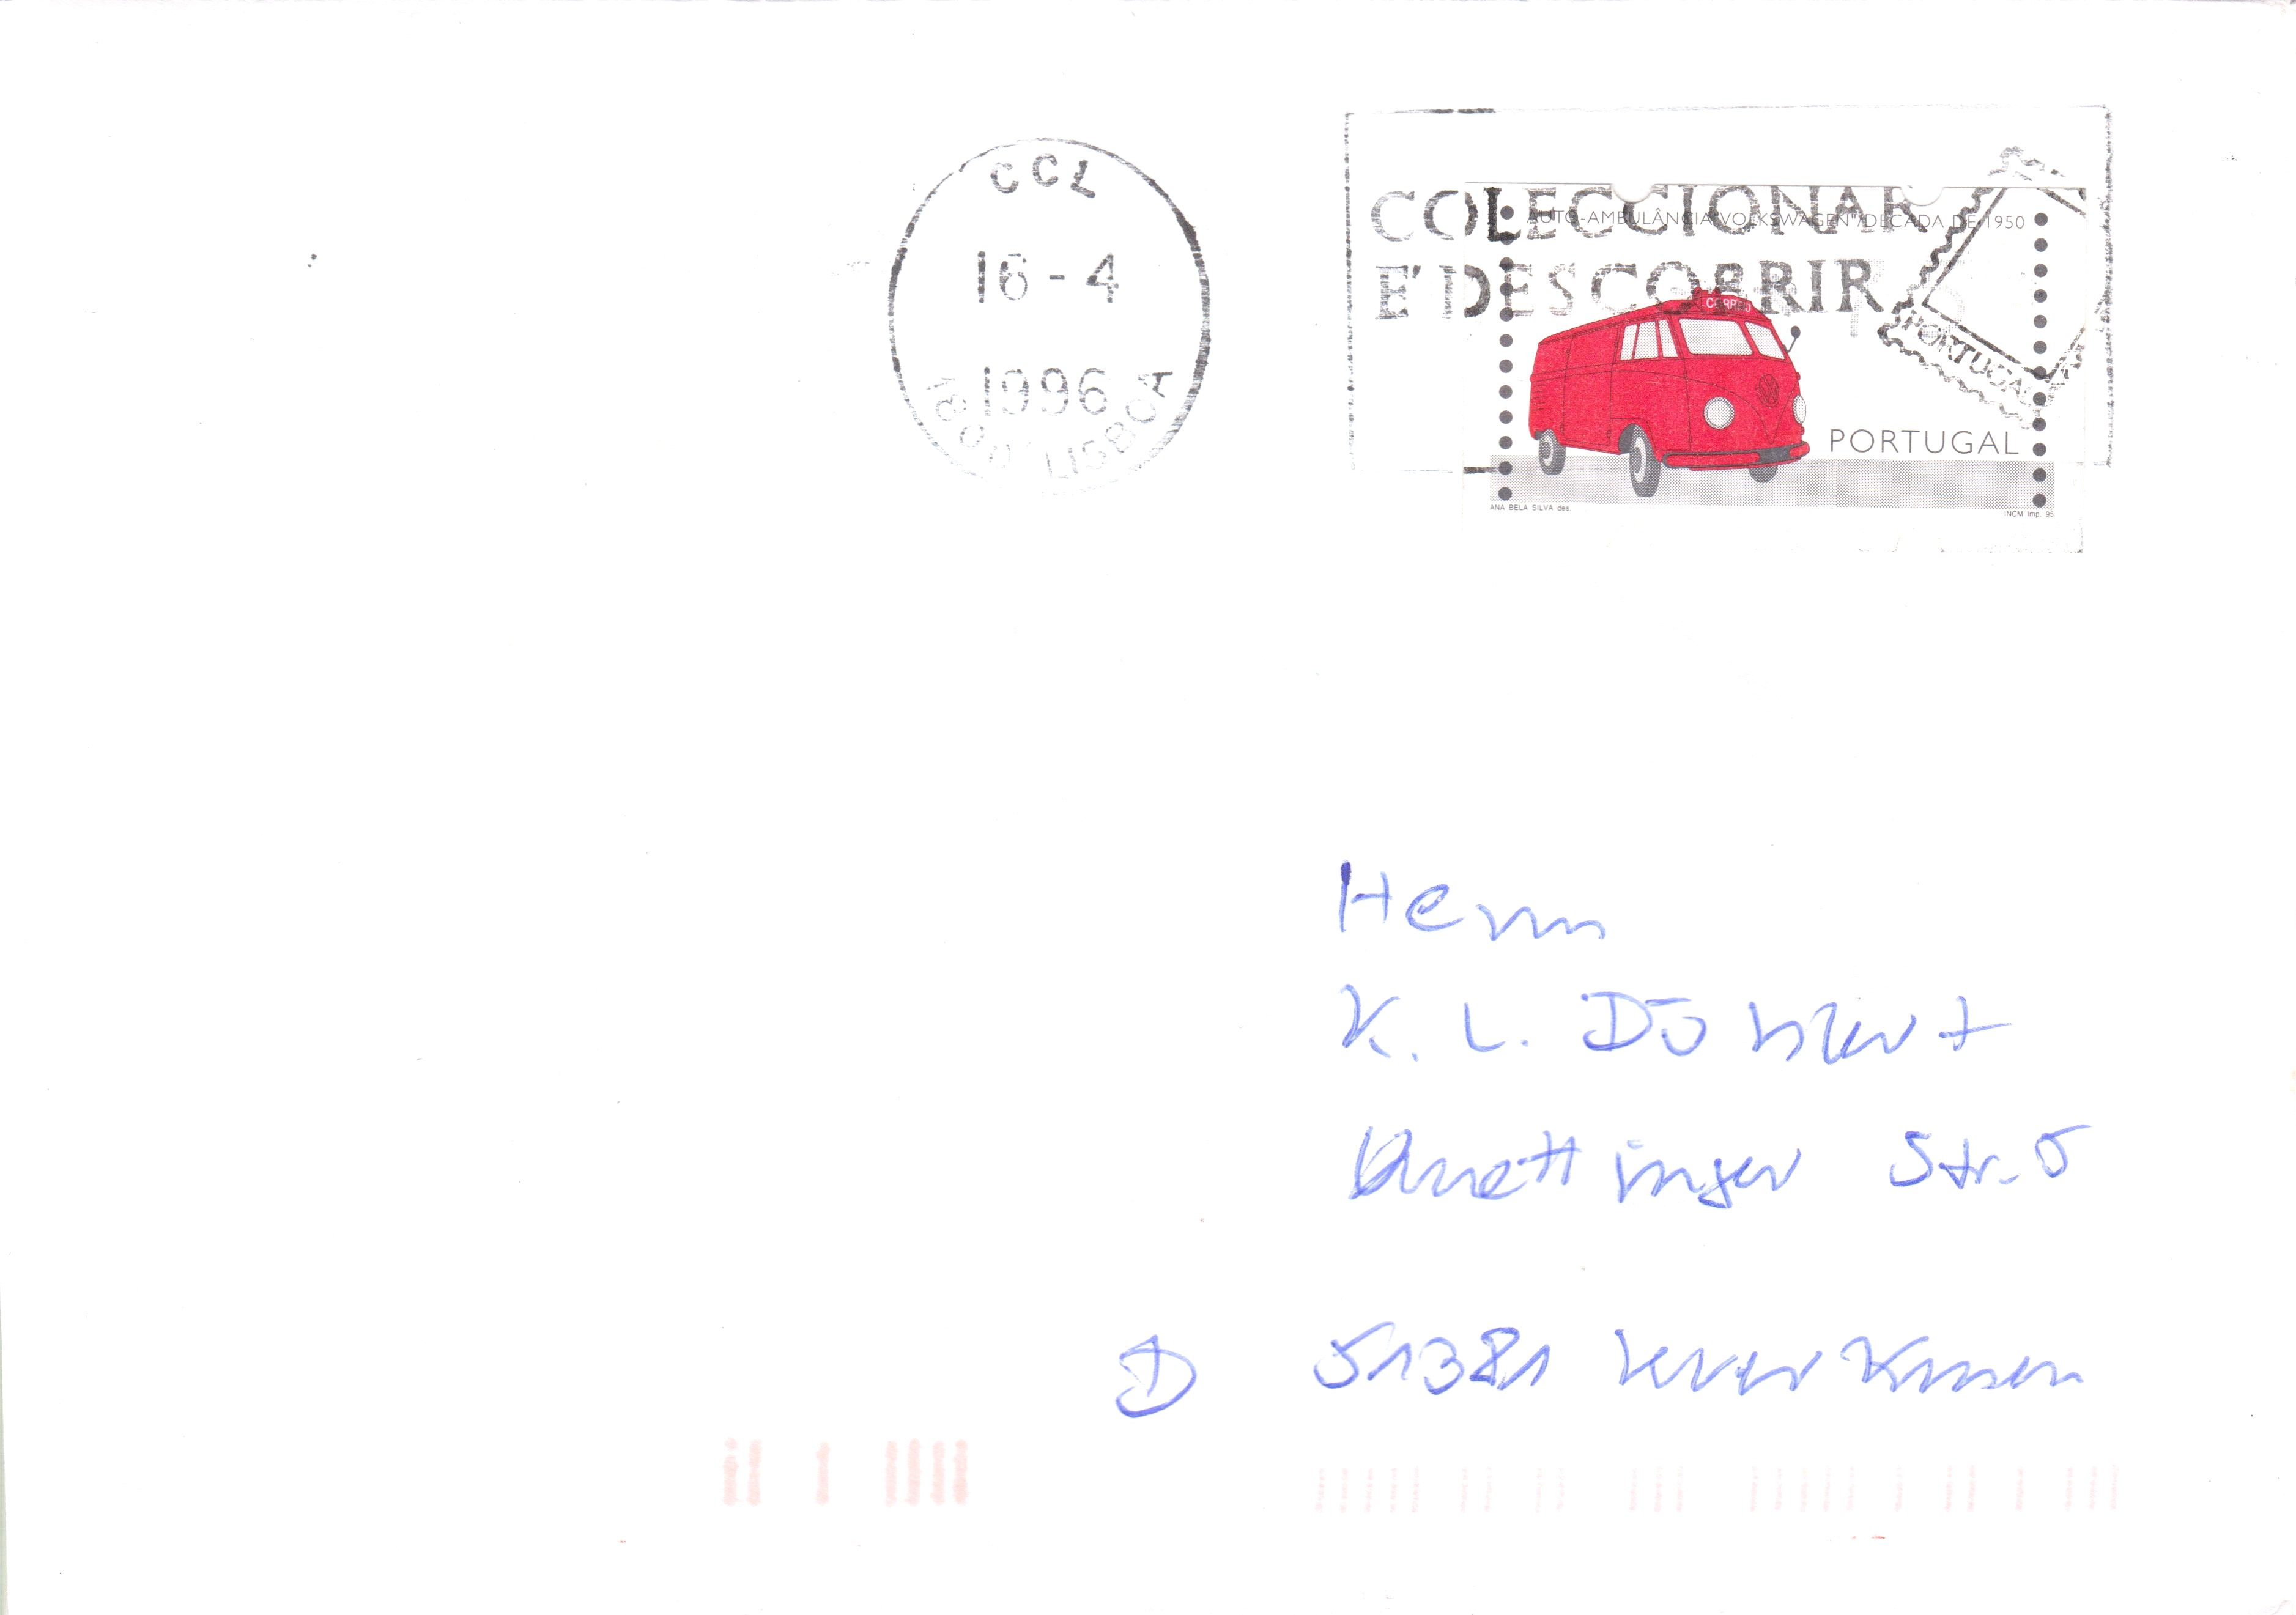 CCL
16-4
1996
LISBOA
COLECCIONAR
E' DESCOBRIR
PORTUGAL
AUTO-AMBULÂNCIA "VOLKSWAGEN"/DÉCADA DE 1950
CORREIO
PORTUGAL
ANA BELA SILVA des.
INCM imp. 95
Herrn
K. L. Döhlert
Quettinger Str. 5
D 51381 Leverkusen